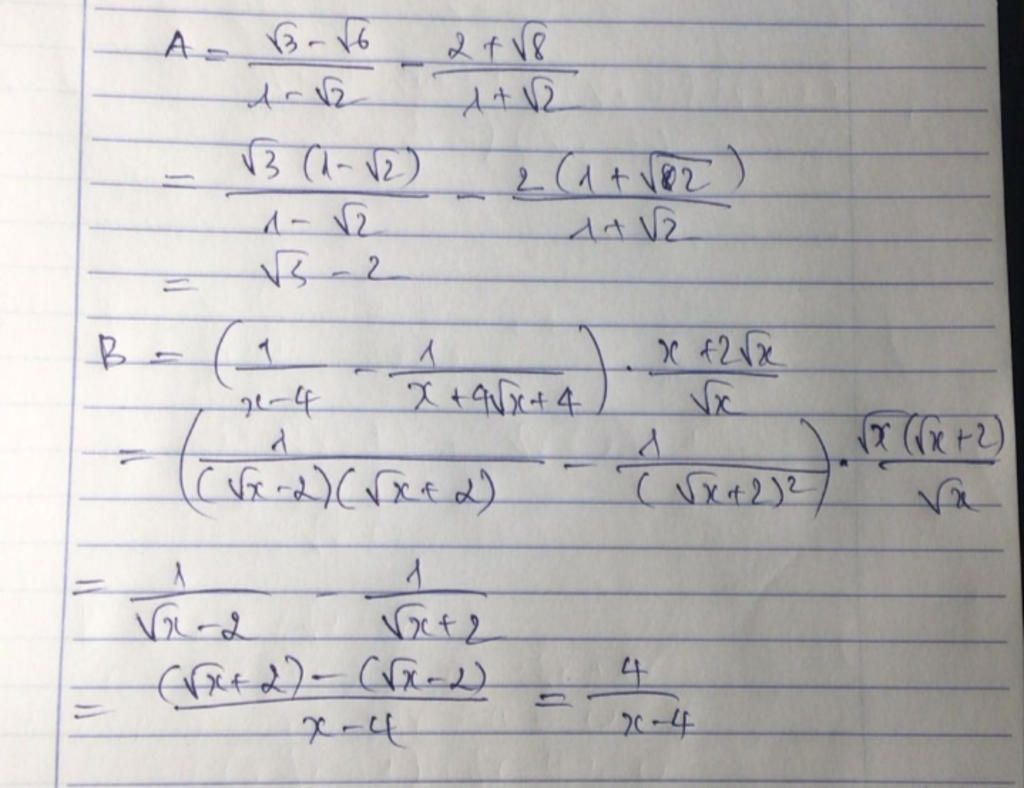 A = (√3 - √6)/(1 - √2) - (2 + √8)/(1 + √2)
= (√3 (1 - √2))/(1 - √2) - (2 (1 + √2))/(1 + √2)
= √3 - 2
B = (1/(x - 4) - 1/(x + 4√x + 4)) . (x + 2√x)/√x
= (1/((√x - 2)(√x + 2)) - 1/(√x + 2)²) . (√x (√x + 2))/√x
= 1/(√x - 2) - 1/(√x + 2)
= ((√x + 2) - (√x - 2))/(x - 4) = 4/(x - 4)